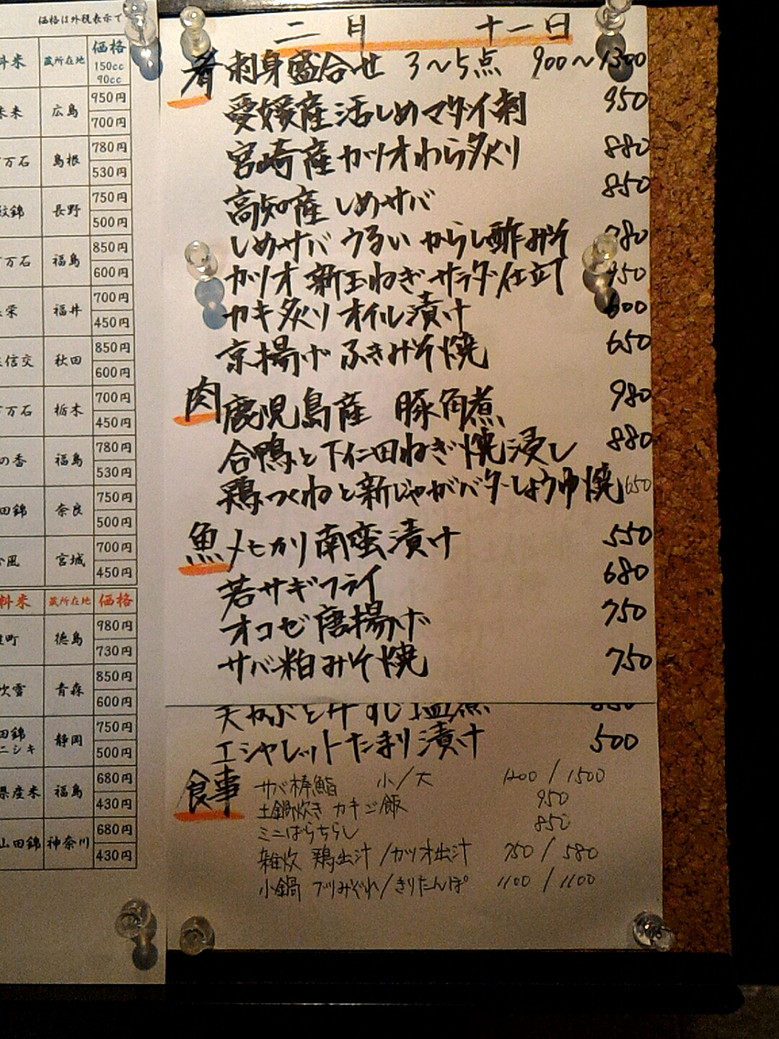 価格は外税表示で
料米 蔵所在地 価格
150cc
90cc
広島 950円
700円
万石 島根 780円
530円
紋錦 長野 750円
500円
万石 福島 850円
600円
栄 福井 700円
450円
信交 秋田 850円
600円
万石 栃木 700円
450円
の香 福島 780円
530円
田錦 奈良 750円
500円
風 宮城 700円
450円
料米 蔵所在地 価格
町 徳島 980円
730円
吹雪 青森 850円
600円
田錦 静岡 750円
ニシキ 500円
県産米 福島 680円
430円
山田錦 神奈川 680円
430円
二月 十一日
肴 刺身盛合せ 3〜5点 900〜1300
愛媛産活しめマダイ刺 950
宮崎産カツオわら炙り 880
高知産しめサバ 850
しめサバ うるい からし酢みそ 780
カツオ 新玉ねぎ サラダ仕立て 950
カキ炙り オイル漬け 600
京揚げ ふきみそ焼 650
肉 鹿児島産 豚角煮 980
合鴨と下仁田ねぎ焼浸し 880
鶏つくねと新じゃがバターしょうゆ焼 650
魚 メヒカリ南蛮漬け 550
若サギフライ 680
オコゼ唐揚げ 750
サバ粕みそ焼 750
エシャレットたまり漬け 500
食事 サバ棒鮨 小/大 1200/1500
土鍋炊き カキご飯 950
ミニばらちらし 850
雑炊 鶏出汁/カツオ出汁 750/580
小鍋 ブリみぞれ/きりたんぽ 1100/1100